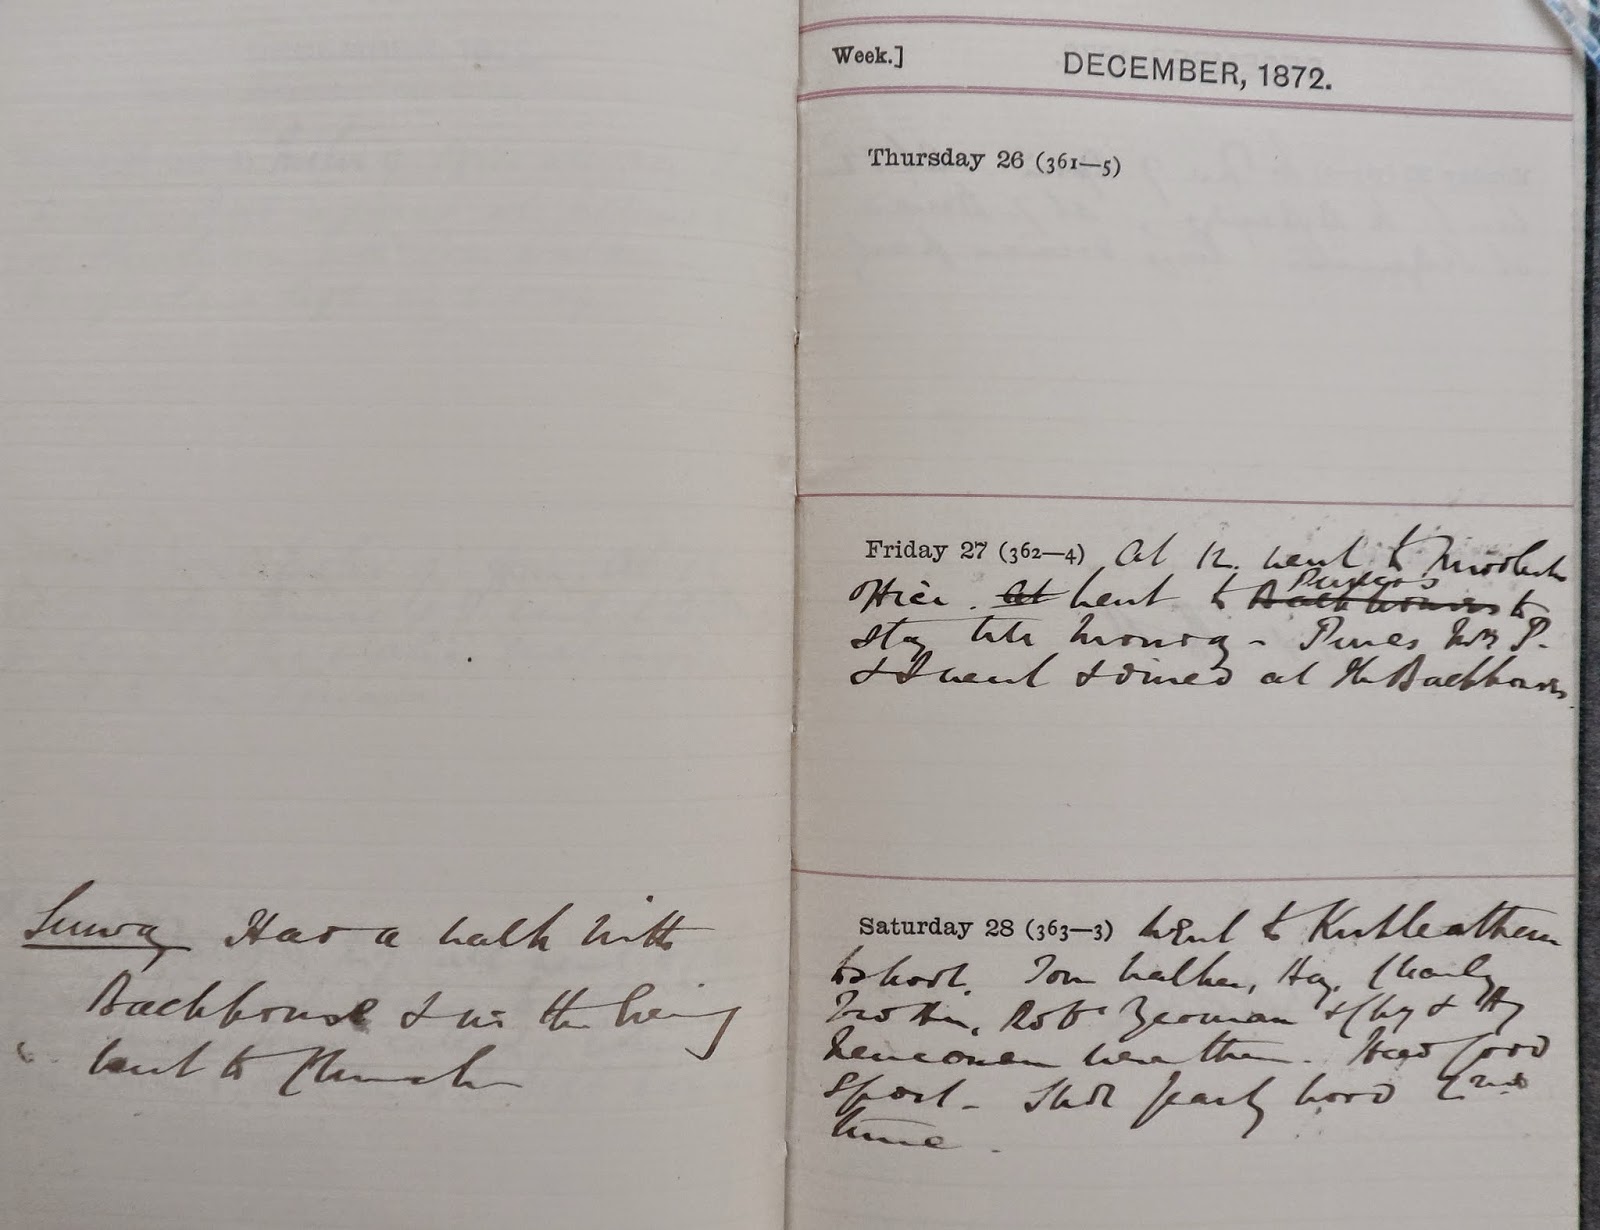 Sunday Had a walk with
Backhouse & in the evening
went to Church
Week.]
DECEMBER, 1872.
Thursday 26 (361—5)
Friday 27 (362—4) At 12. went to
Office. At went to Backhouses to
stay till Monday - Mrs P.
& I went & dined at the Backhouses
Saturday 28 (363—3) Went to Kirkleatham
to shoot. Tom Walker, Hy. Charley
Trotter, Robt Yeoman & Chy & Hy
were there. Had good
sport - Shot wood 2nd
time.